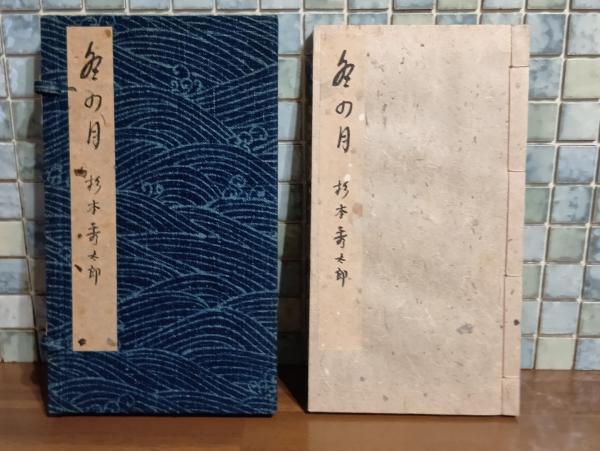 冬の月
杉本秀太郎
冬の月
杉本秀太郎